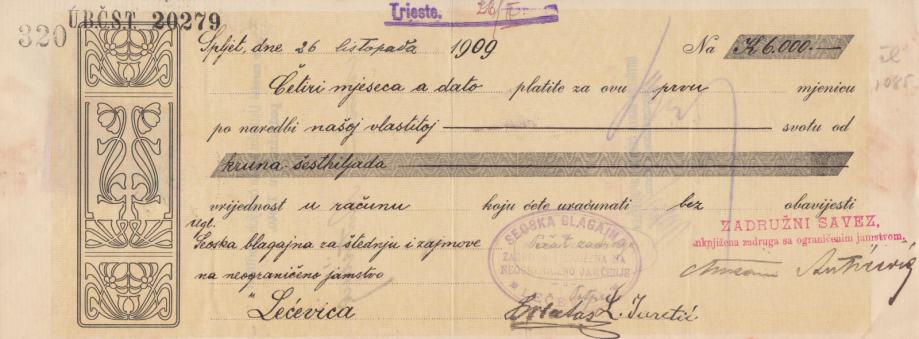 320 Ú.B.Č.S.T. 20279
Trieste. 26/I
Spljet, dne 26 listopada 1909 Na K 6.000.—
Četiri mjeseca a dato platite za ovu prvu mjenicu
po naredbi našoj vlastitoj svotu od
kruna šesthiljada
vrijednost u računu koju ćete uračunati bez obavijesti
Ugl.
Seoska blagajna za štednju i zajmove
na neograničeno jamstvo
"Lećevica
SEOSKA BLAGAJN
NEOGRANIČENO JAMČENJE
L. Juretić
ZADRUŽNI SAVEZ,
uknjižena zadruga sa ograničenim jamstvom,